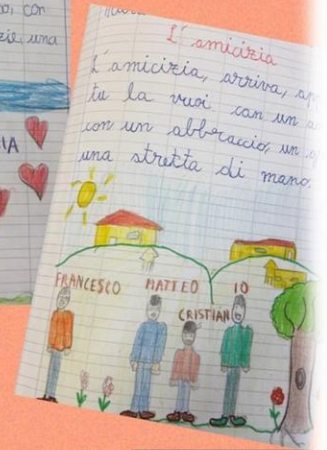 oi, con
zie, una
IA
L'amicizia
L'amicizia, arriva,
tu la vuoi con un
con un abbraccio, un
una stretta di mano.
FRANCESCO MATTEO IO
CRISTIAN